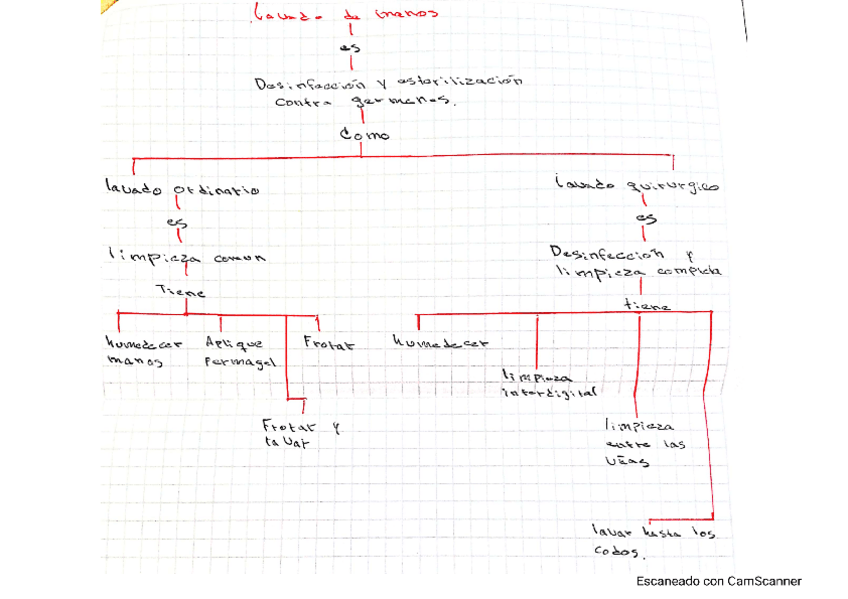 Lavado de manos
es
Desinfección y esterilización
contra germenes.
Como
lavado ordinario
lavado quirurgico
es
es
limpieza comun
Desinfeccion y
limpieza completa
Tiene
tiene
humedecer
manos
Aplique
Permagel
Frotar
humedecer
limpieza
interdigital
Frotar y
lavar
limpieza
entre las
uñas
lavar hasta los
codos.
Escaneado con CamScanner